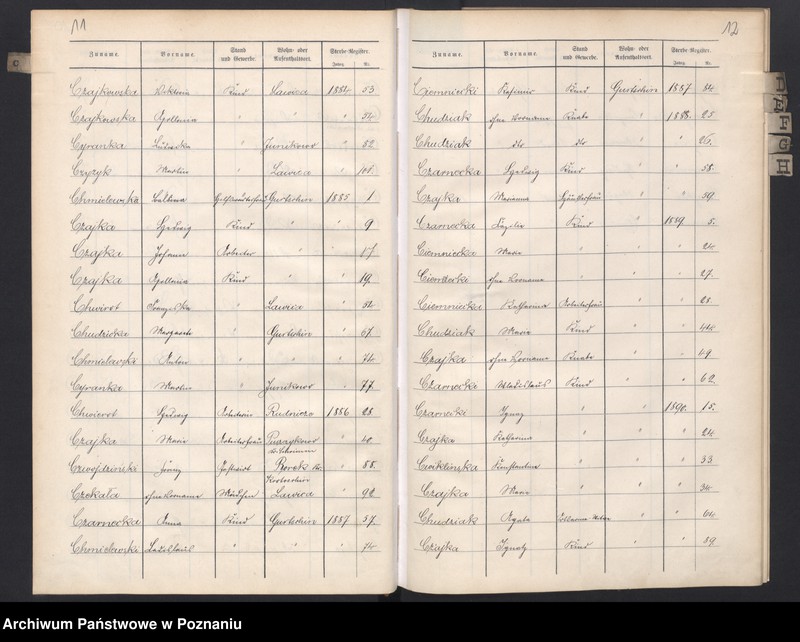 11
Zuname. Vorname. Stand und Gewerbe. Wohn- oder Aufenthaltsort. Sterbe-Register. Jahrg. Nr.
Czajkowska Viktoria Kind Lawica 1884 53
Czajkowska Apollonia " " " 54
Cyranka Ludwika " Junikowo " 82
Czyzyk Martin " Lawica "
Chmielewska Gurtschin 1885 1
Czajka Hedwig Kind " " 9
Czajka Johann Arbeiter " " 17
Czajka Apollonia Kind " " 19.
Chwirot Franziska " Lawica " 54
Chudzicka Margarete " Gurtschin " 67.
Chmielewski Anton " " " 74
Cyranka Martin " Junikowo " 77
Chwirot Hedwig Rudnicze 1886 28
Czajka Marie Arbeiterfrau " 40
" 88.
Czekała ohne Vorname Mädchen Lawica " 92
Czarnecka Anna Kind Gurtschin 1887 37.
Chmielewski Ladislaus " " " 74
12
Zuname. Vorname. Stand und Gewerbe. Wohn- oder Aufenthaltsort. Sterbe-Register. Jahrg. Nr.
Ciemniecki Kasimir Kind Gurtschin 1887 84
Chudziak ohne Vorname Knabe " 1888. 25
Chudziak dto dto " 26.
Czarnecka Hedwig Kind " " 58.
Czajka Marianna Häuslerfrau " " 59.
Czarnecka Kind " 1889 5.
Ciemniecka Marie " " " 24
ohne Vorname " " " 27.
Ciemniecka Katharina Arbeiterfrau " " 28.
Chudziak Maria Kind " " 44
Czajka ohne Vorname Knabe " " 49.
Czarnecki Wladislaus Kind " " 62.
Czarnecki Ignaz " " 1890. 15.
Czajka Katharina " " " 24
Cwiklinska Konstantina " " " 33
Czajka Marie " " " 34
Chudziak Agata " " 64
Czajka Ignatz Kind " " 89.
C
D
E
F
G
H
Archiwum Państwowe w Poznaniu